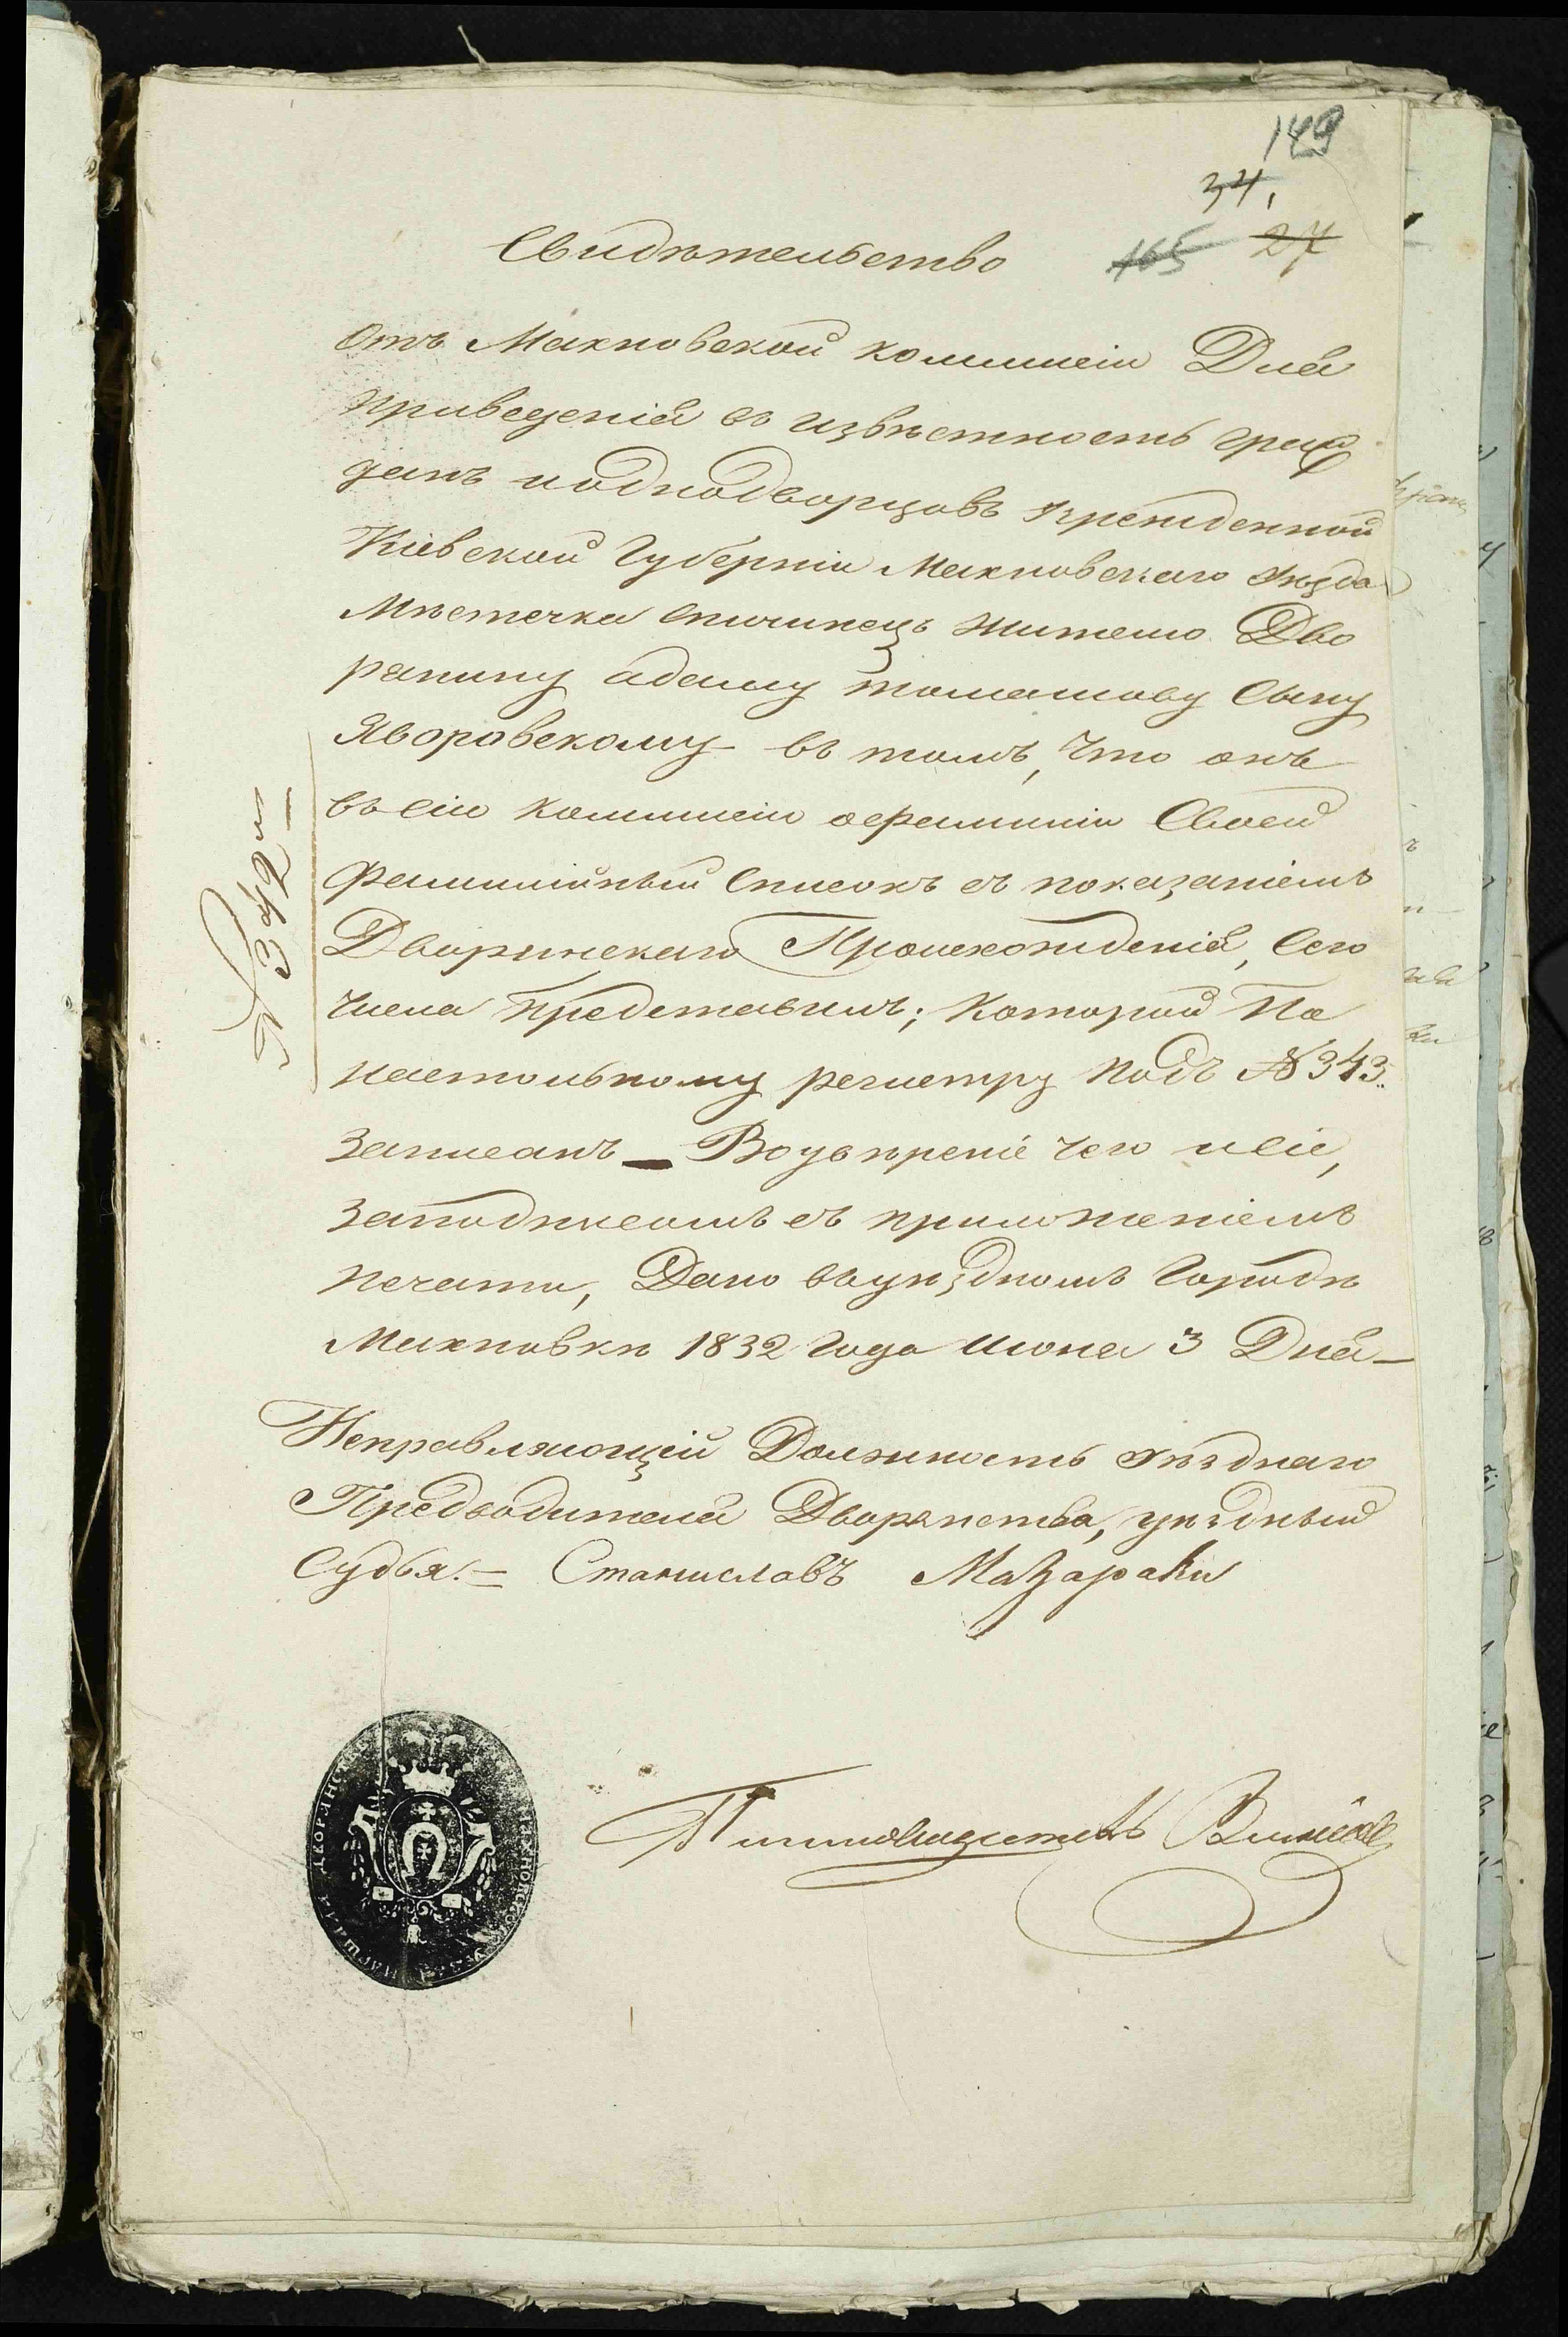 149
34,
165 27
Свидѣтельство
Отъ Махновской коммисіи Для
приведенія въ извѣстность граж
данъ иоднодворцовъ учрежденной
Кіевской Губерніи Махновскаго уѣзда
Мѣстечка Спичинецъ жителю Дво
рянину адаму томашову Сыну
Яворовскому въ томъ, что онъ
въсію коммисію офамиліи Своей
фамилійный Списокъ съ показаніемъ
Дворянскаго Происхожденія, Сего
числа представилъ; которой По
настольному регистру подъ №343.
записанъ — Воувѣреніе чего исіе,
заподписомъ съ приложеніемъ
печати, Дано въуѣздномъ Городѣ
Махновкѣ 1832 года Июня 3 Дня —
№ 342й
Исправляющій Должность уѣзднаго
Предводителя Дворянства, уѣздный
Судья. = Станиславъ Мазараки
Письмоводитель